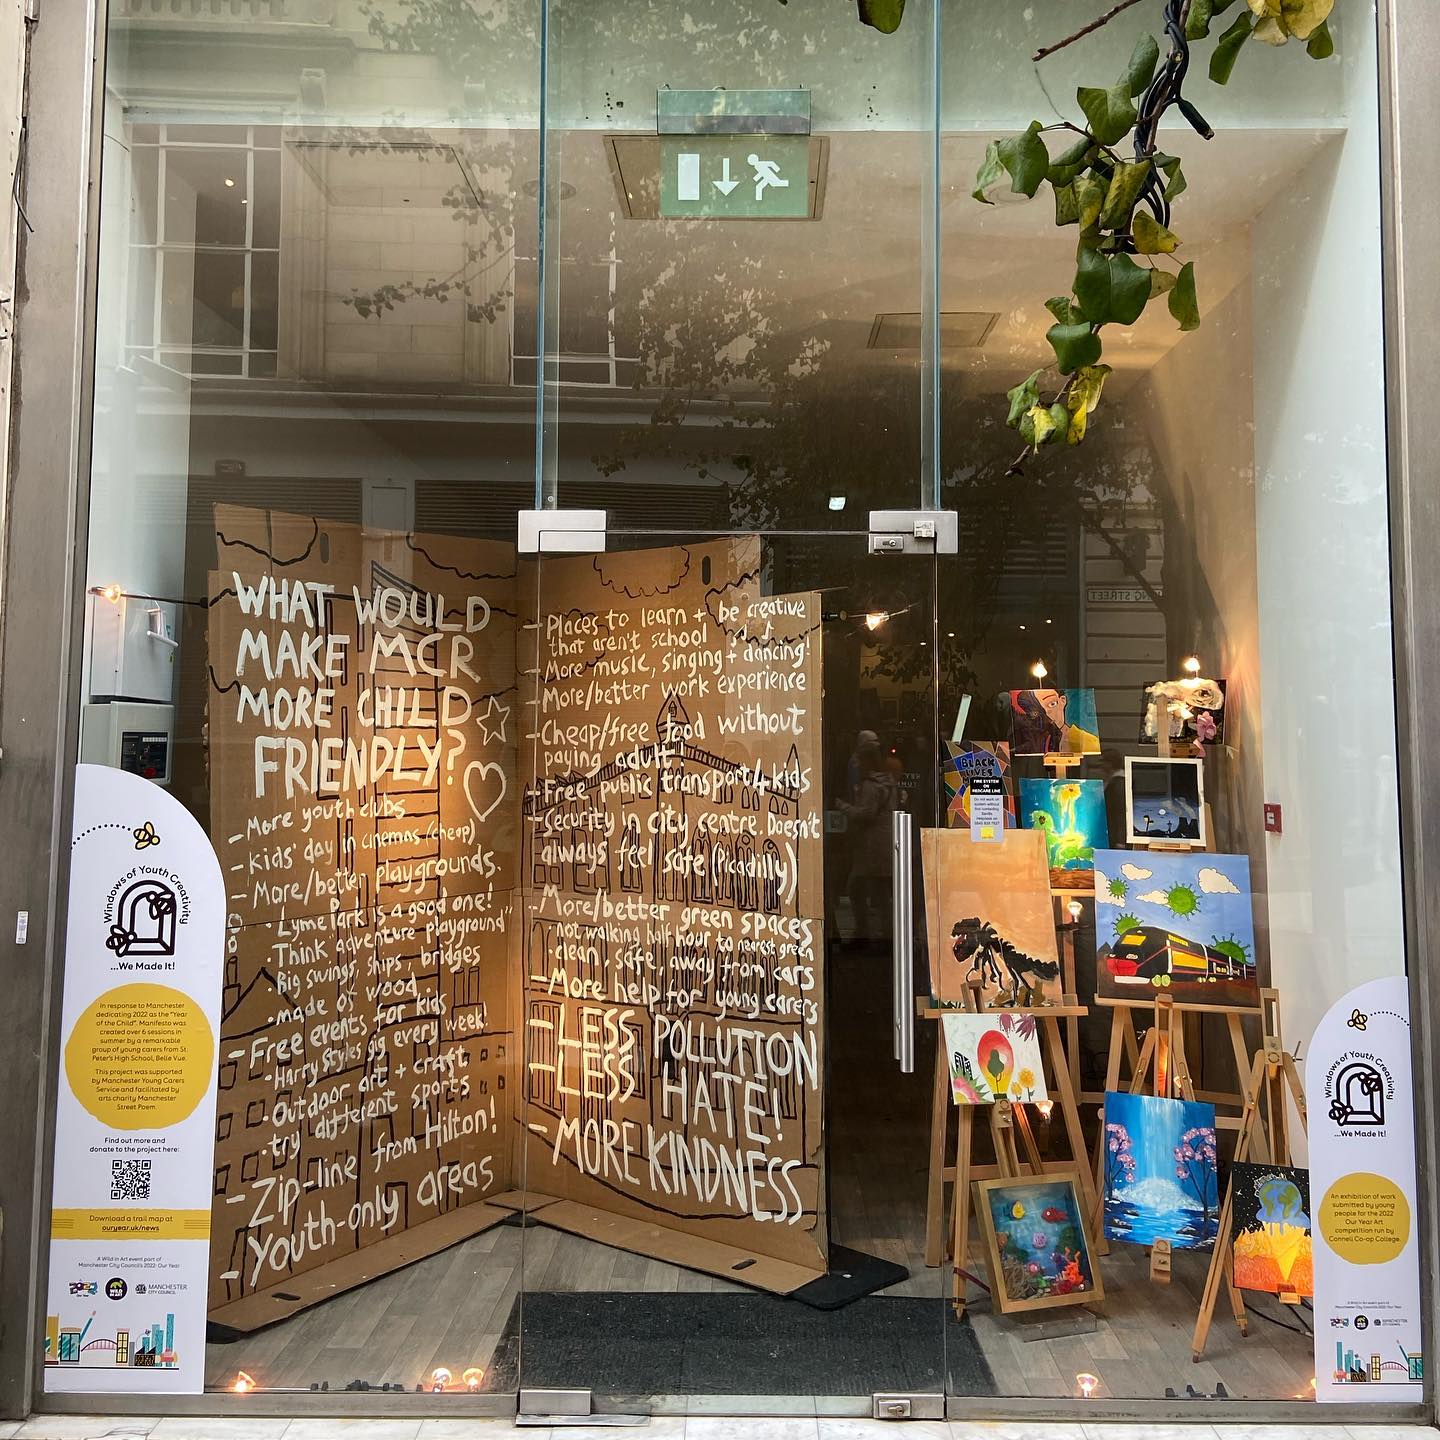 WHAT WOULD
MAKE MCR
MORE CHILD
FRIENDLY?
- More youth clubs
- Kids' day in cinemas (cheap)
- More/better playgrounds.
· Lyme Park is a good one!
· Think "adventure playground"
Big swings, ships, bridges
· made of wood.
- Free events for kids
· Harry Styles gig every week!
· Outdoor art + craft
· try different sports
- Zip-line from Hilton!
- Youth-only areas
- Places to learn + be creative
that aren't school
- More music, singing + dancing!
- More/better work experience
- Cheap/free food without
paying adult
- Free public transport 4 kids
- Security in city centre. Doesn't
always feel safe (Picadilly)
- More/better green spaces
· not walking half hour to nearest green
· clean, safe, away from cars
- More help for young carers
- LESS POLLUTION
- LESS HATE!
- MORE KINDNESS
Windows of Youth Creativity
...We Made It!
In response to Manchester
dedicating 2022 as the "Year
of the Child". Manifesto was
created over 6 sessions in
summer by a remarkable
group of young carers from St.
Peter's High School, Belle Vue.
This project was supported
by Manchester Young Carers
Service and facilitated by
arts charity Manchester
Street Poem.
Find out more and
donate to the project here:
Download a trail map at
ouryear.uk/news
A Wild in Art event part of
Manchester City Council's 2022: Our Year
2022
Our Year
WILD
IN ART
MANCHESTER
CITY COUNCIL
KING STREET
BLACK
LIVES
FIRE SYSTEM
ON
REDCARE LINE
Do not work on
system without
first contacting
Windows of Youth Creativity
...We Made It!
An exhibition of work
submitted by young
people for the 2022
Our Year Art
competition run by
Connell Co-op College.
A Wild in Art event part of
Manchester City Council's 2022: Our Year
MANCHESTER
CITY COUNCIL